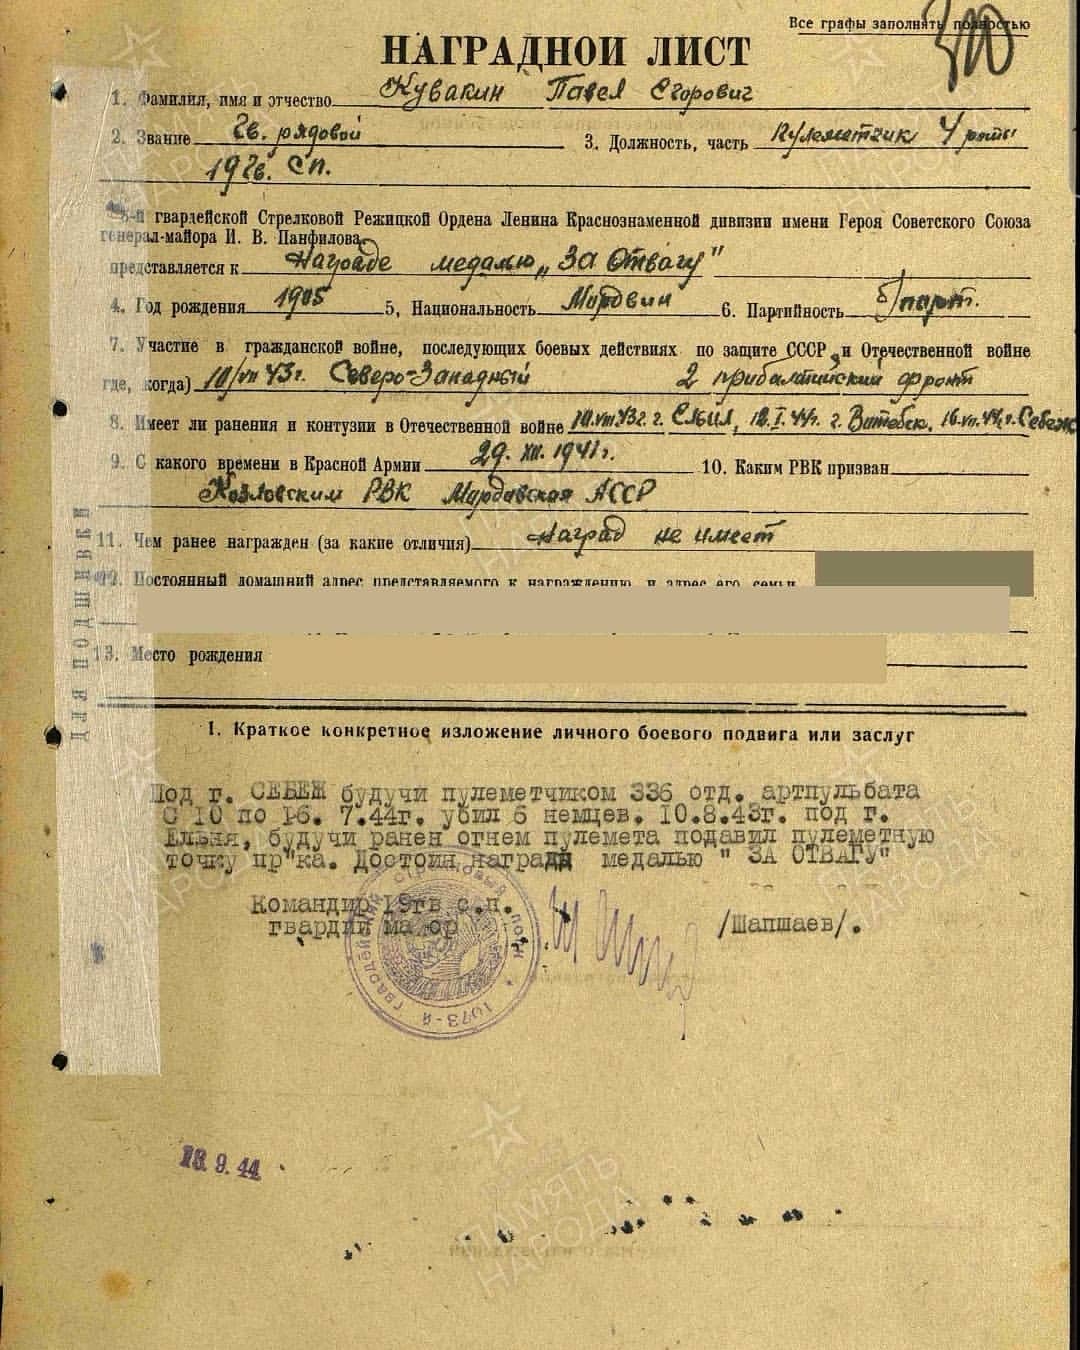 Все графы заполнять полностью
НАГРАДНОЙ ЛИСТ
1. Фамилия, имя и отчество Кувакин Павел Егорович
2. Звание Гв. рядовой 3. Должность, часть Пулеметчик 4 роты
19 гв. сп.
8-й гвардейской Стрелковой Режицкой Ордена Ленина Краснознаменной дивизии имени Героя Советского Союза
генерал-майора И. В. Панфилова
представляется к Награде медалью „За Отвагу"
4. Год рождения 1905 5, Национальность Мордвин 6. Партийность б/парт.
7. Участие в гражданской войне, последующих боевых действиях по защите СССР и Отечественной войне
где, когда) 10/VII 43г. Северо-Западный 2 прибалтийский фронт
8. Имеет ли ранения и контузии в Отечественной войне 10.VIII 43г. г. 12.I.44г. г. Витебск, 16.VII.44г. г. Себеж
9. С какого времени в Красной Армии 29. XII. 1941г. 10. Каким РВК призван
Козловским РВК Мордавская АССР
11. Чем ранее награжден (за какие отличия) Наград не имеет
12. Постоянный домашний адрес представляемого к награждению и адрес его семьи
13. Место рождения
ДЛЯ ПОДШИВКИ
1. Краткое конкретное изложение личного боевого подвига или заслуг
Под г. СЕБЕЖ будучи пулеметчиком 336 отд. артпульбата
С 10 по 16. 7.44г. убил 6 немцев. 10.8.43г. под г.
Ельня, будучи ранен огнем пулемета подавил пулеметную
точку пр"ка. Достоин награды медалью " ЗА ОТВАГУ"
Командир 19гв с.п.
гвардии майор /Шапшаев/.
1073-й гвардейский стрелковый полк
18.9.44
ПАМЯТЬ
НАРОДА